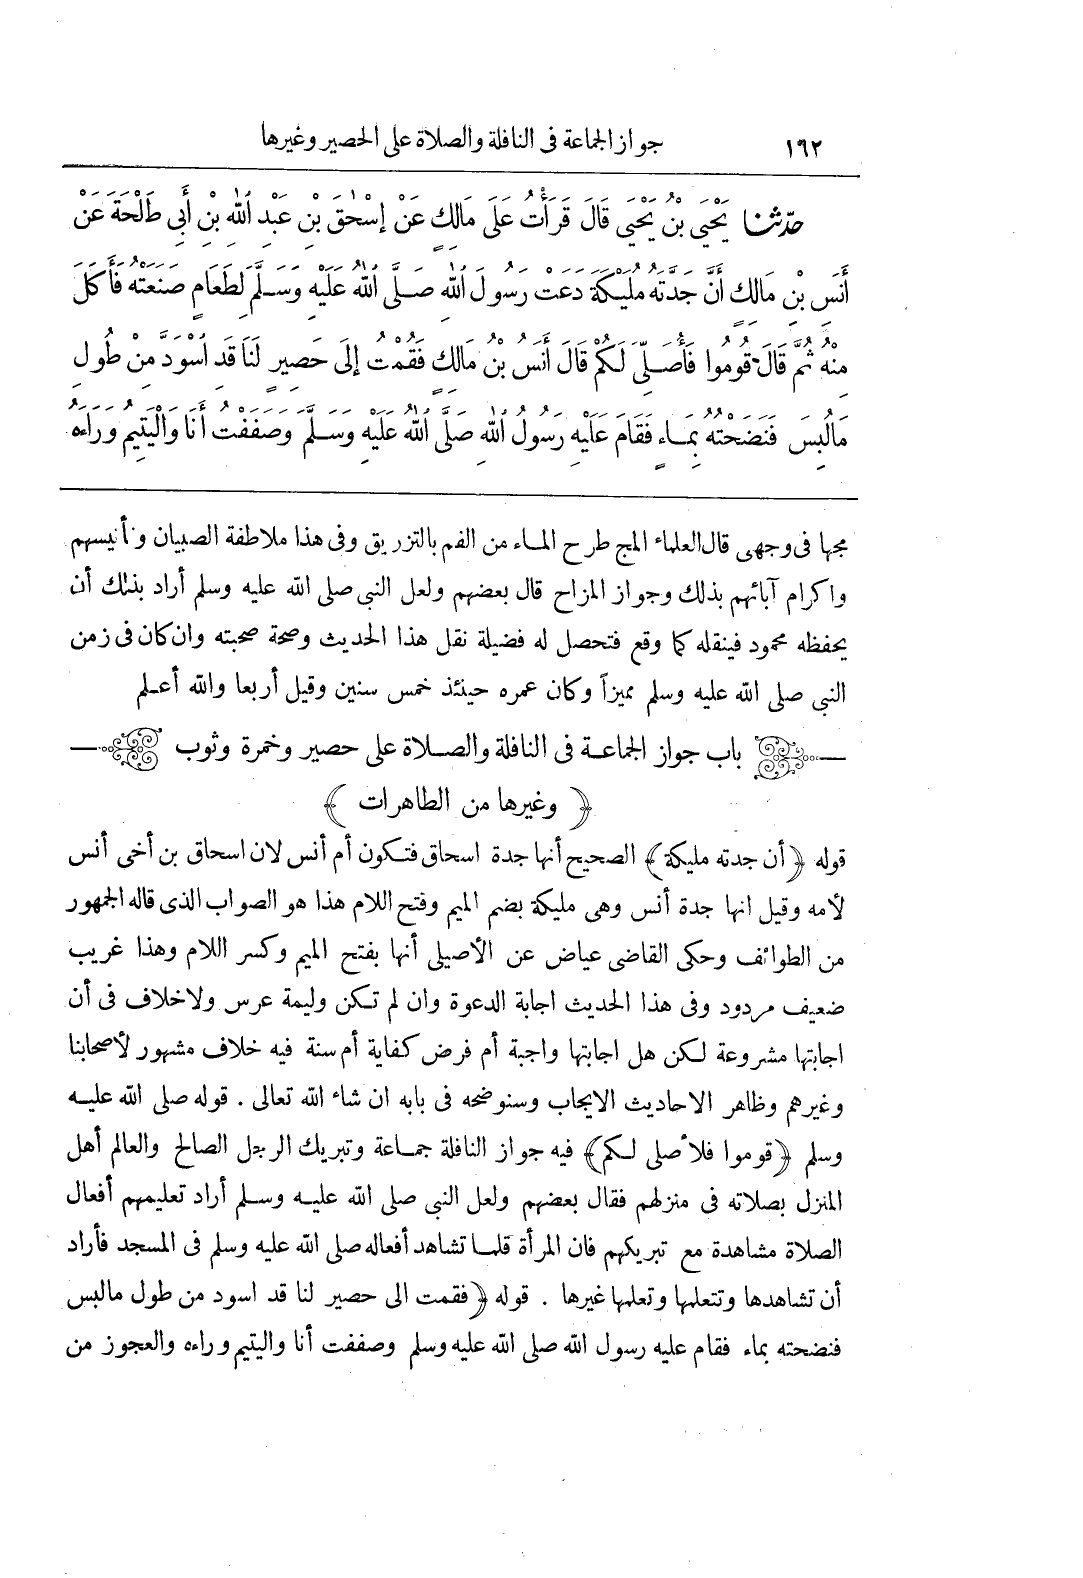 ١٦٢ جواز الجماعة فى النافلة والصلاة على الحصير وغيرها
حدّثنا يَحْيَى بْنُ يَحْيَى قَالَ قَرَأْتُ عَلَى مَالِكٍ عَنْ إِسْحٰقَ بْنِ عَبْدِ اللهِ بْنِ أَبِى طَلْحَةَ عَنْ
أَنَسِ بْنِ مَالِكٍ أَنَّ جَدَّتَهُ مُلَيْكَةَ دَعَتْ رَسُولَ اللهِ صَلَّى اللهُ عَلَيْهِ وَسَلَّمَ لِطَعَامٍ صَنَعَتْهُ فَأَكَلَ
مِنْهُ ثُمَّ قَالَ قُومُوا فَأُصَلِّىَ لَكُمْ قَالَ أَنَسُ بْنُ مَالِكٍ فَقُمْتُ إِلَى حَصِيرٍ لَنَا قَدِ اسْوَدَّ مِنْ طُولِ
مَالُبِسَ فَنَضَحْتُهُ بِمَاءٍ فَقَامَ عَلَيْهِ رَسُولُ اللهِ صَلَّى اللهُ عَلَيْهِ وَسَلَّمَ وَصَفَفْتُ أَنَا وَالْيَتِيمُ وَرَاءَهُ
مجها فى وجهى قال العلماء المج طرح الماء من الفم بالتزريق وفى هذا ملاطفة الصبيان وتأنيسهم
واكرام آبائهم بذلك وجواز المزاح قال بعضهم ولعل النبى صلى الله عليه وسلم أراد بذلك أن
يحفظه محمود فينقله كما وقع فتحصل له فضيلة نقل هذا الحديث وصحة صحبته وان كان فى زمن
النبى صلى الله عليه وسلم مميزاً وكان عمره حينئذ خمس سنين وقيل أربعا والله أعلم
باب جواز الجماعة فى النافلة والصلاة على حصير وخمرة وثوب
﴿ وغيرها من الطاهرات ﴾
قوله ﴿أن جدته مليكة﴾ الصحيح أنها جدة اسحاق فتكون أم أنس لان اسحاق بن أخى أنس
لأمه وقيل انها جدة أنس وهى مليكة بضم الميم وفتح اللام هذا هو الصواب الذى قاله الجمهور
من الطوائف وحكى القاضى عياض عن الأصيلى أنها بفتح الميم وكسر اللام وهذا غريب
ضعيف مردود وفى هذا الحديث اجابة الدعوة وان لم تكن وليمة عرس ولاخلاف فى أن
اجابتها مشروعة لكن هل اجابتها واجبة أم فرض كفاية أم سنة فيه خلاف مشهور لأصحابنا
وغيرهم وظاهر الاحاديث الايجاب وسنوضحه فى بابه ان شاء الله تعالى . قوله صلى الله عليه
وسلم ﴿قوموا فلأصلى لكم﴾ فيه جواز النافلة جماعة وتبريك الرجل الصالح والعالم أهل
المنزل بصلاته فى منزلهم فقال بعضهم ولعل النبى صلى الله عليه وسلم أراد تعليمهم أفعال
الصلاة مشاهدة مع تبريكهم فان المرأة قلما تشاهد أفعاله صلى الله عليه وسلم فى المسجد فأراد
أن تشاهدها وتتعلمها وتعلمها غيرها . قوله ﴿فقمت الى حصير لنا قد اسود من طول مالبس
فنضحته بماء فقام عليه رسول الله صلى الله عليه وسلم وصففت أنا واليتيم وراءه والعجوز من